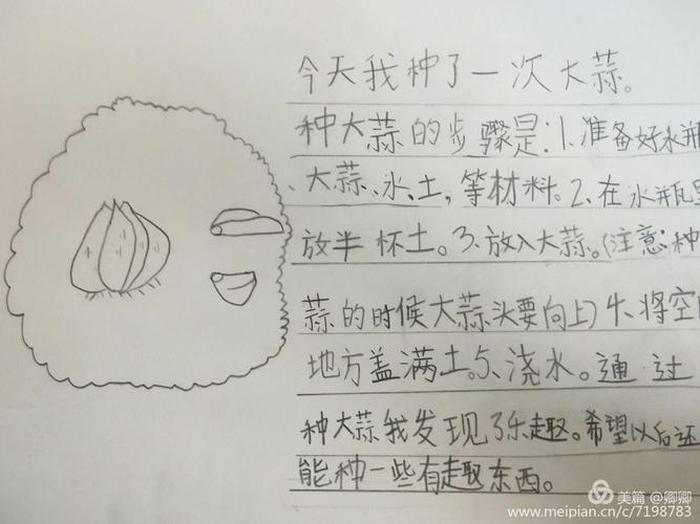 今天我种了一次大蒜。
种大蒜的步骤是:1.准备好水瓶
、大蒜、水、土,等材料。2.在水瓶里
放半杯土。3.放入大蒜。(注意:种
蒜的时候大蒜头要向上)4、将空
地方盖满土。5、浇水。通过
种大蒜我发现了乐趣。希望以后还
能种一些有趣东西。
美篇 @卿卿
www.meipian.cn/c/7198783